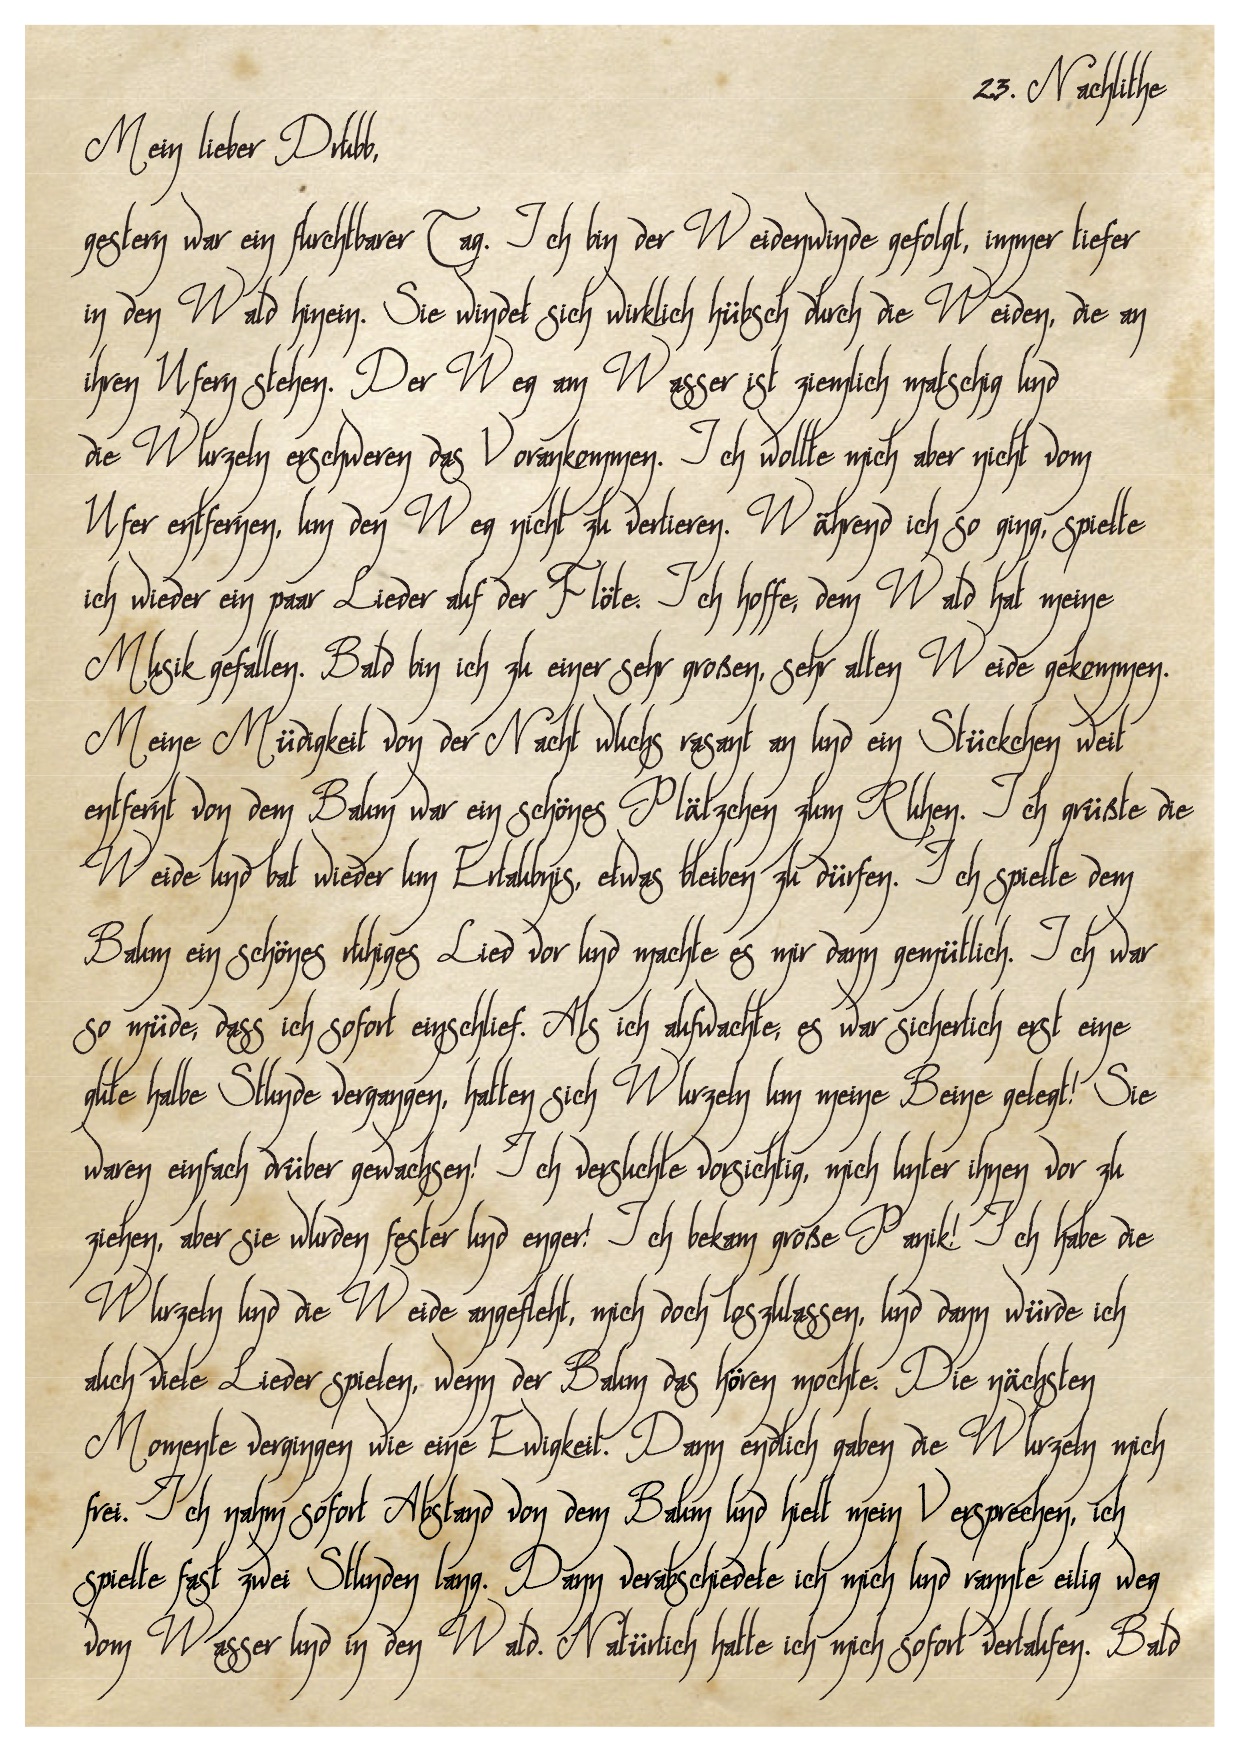 23. Nachlithe
Mein lieber Drubb,
gestern war ein furchtbarer Tag. Ich bin der Weidenwinde gefolgt, immer tiefer
in den Wald hinein. Sie windet sich wirklich hübsch durch die Weiden, die an
ihren Ufern stehen. Der Weg am Wasser ist ziemlich matschig und
die Wurzeln erschweren das Vorankommen. Ich wollte mich aber nicht vom
Ufer entfernen, um den Weg nicht zu verlieren. Während ich so ging, spielte
ich wieder ein paar Lieder auf der Flöte. Ich hoffe, dem Wald hat meine
Musik gefallen. Bald bin ich zu einer sehr großen, sehr alten Weide gekommen.
Meine Müdigkeit von der Nacht wuchs rasant an und ein Stückchen weit
entfernt von dem Baum war ein schönes Plätzchen zum Ruhen. Ich grüßte die
Weide und bat wieder um Erlaubnis, etwas bleiben zu dürfen. Ich spielte dem
Baum ein schönes ruhiges Lied vor und machte es mir dann gemütlich. Ich war
so müde, dass ich sofort einschlief. Als ich aufwachte, es war sicherlich erst eine
gute halbe Stunde vergangen, hatten sich Wurzeln um meine Beine gelegt! Sie
waren einfach drüber gewachsen! Ich versuchte vorsichtig, mich unter ihnen vor zu
ziehen, aber sie wurden fester und enger! Ich bekam große Panik! Ich habe die
Wurzeln und die Weide angefleht, mich doch loszulassen, und dann würde ich
auch viele Lieder spielen, wenn der Baum das hören mochte. Die nächsten
Momente vergingen wie eine Ewigkeit. Dann endlich gaben die Wurzeln mich
frei. Ich nahm sofort Abstand von dem Baum und hielt mein Versprechen, ich
spielte fast zwei Stunden lang. Dann verabschiedete ich mich und rannte eilig weg
vom Wasser und in den Wald. Natürlich hatte ich mich sofort verlaufen. Bald